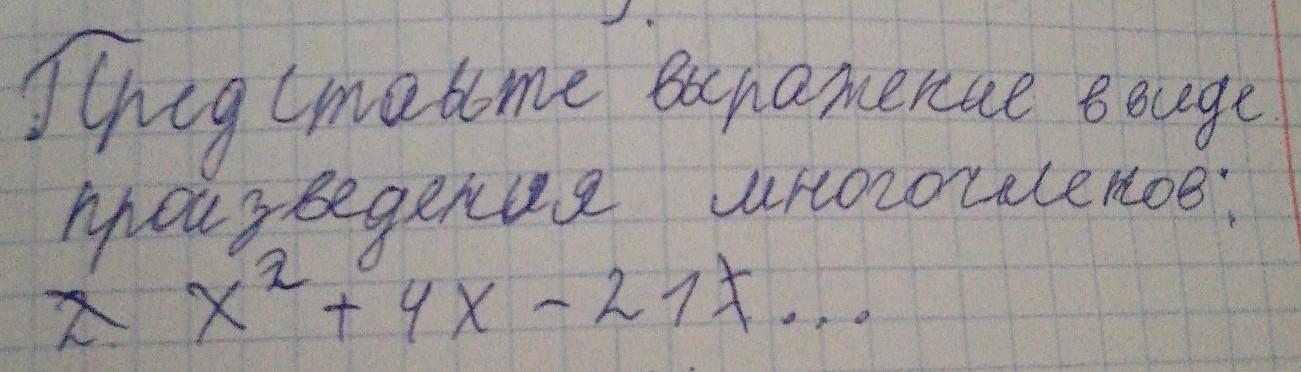 Представьте выражение в виде
произведения многочленов:
x² + 4x - 21...